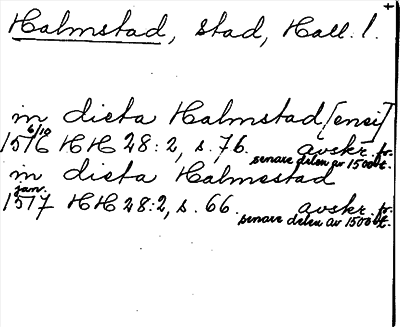 Halmstad, stad, Hall. l.
in dicta Halmstad[ensi]
6/10
1516 HH 28:2, s. 76. avskr. fr.
senare delen av 1500-t.
in dicta Halmestad
jan.
1517 HH 28:2, s. 66. avskr. fr.
senare delen av 1500-t.